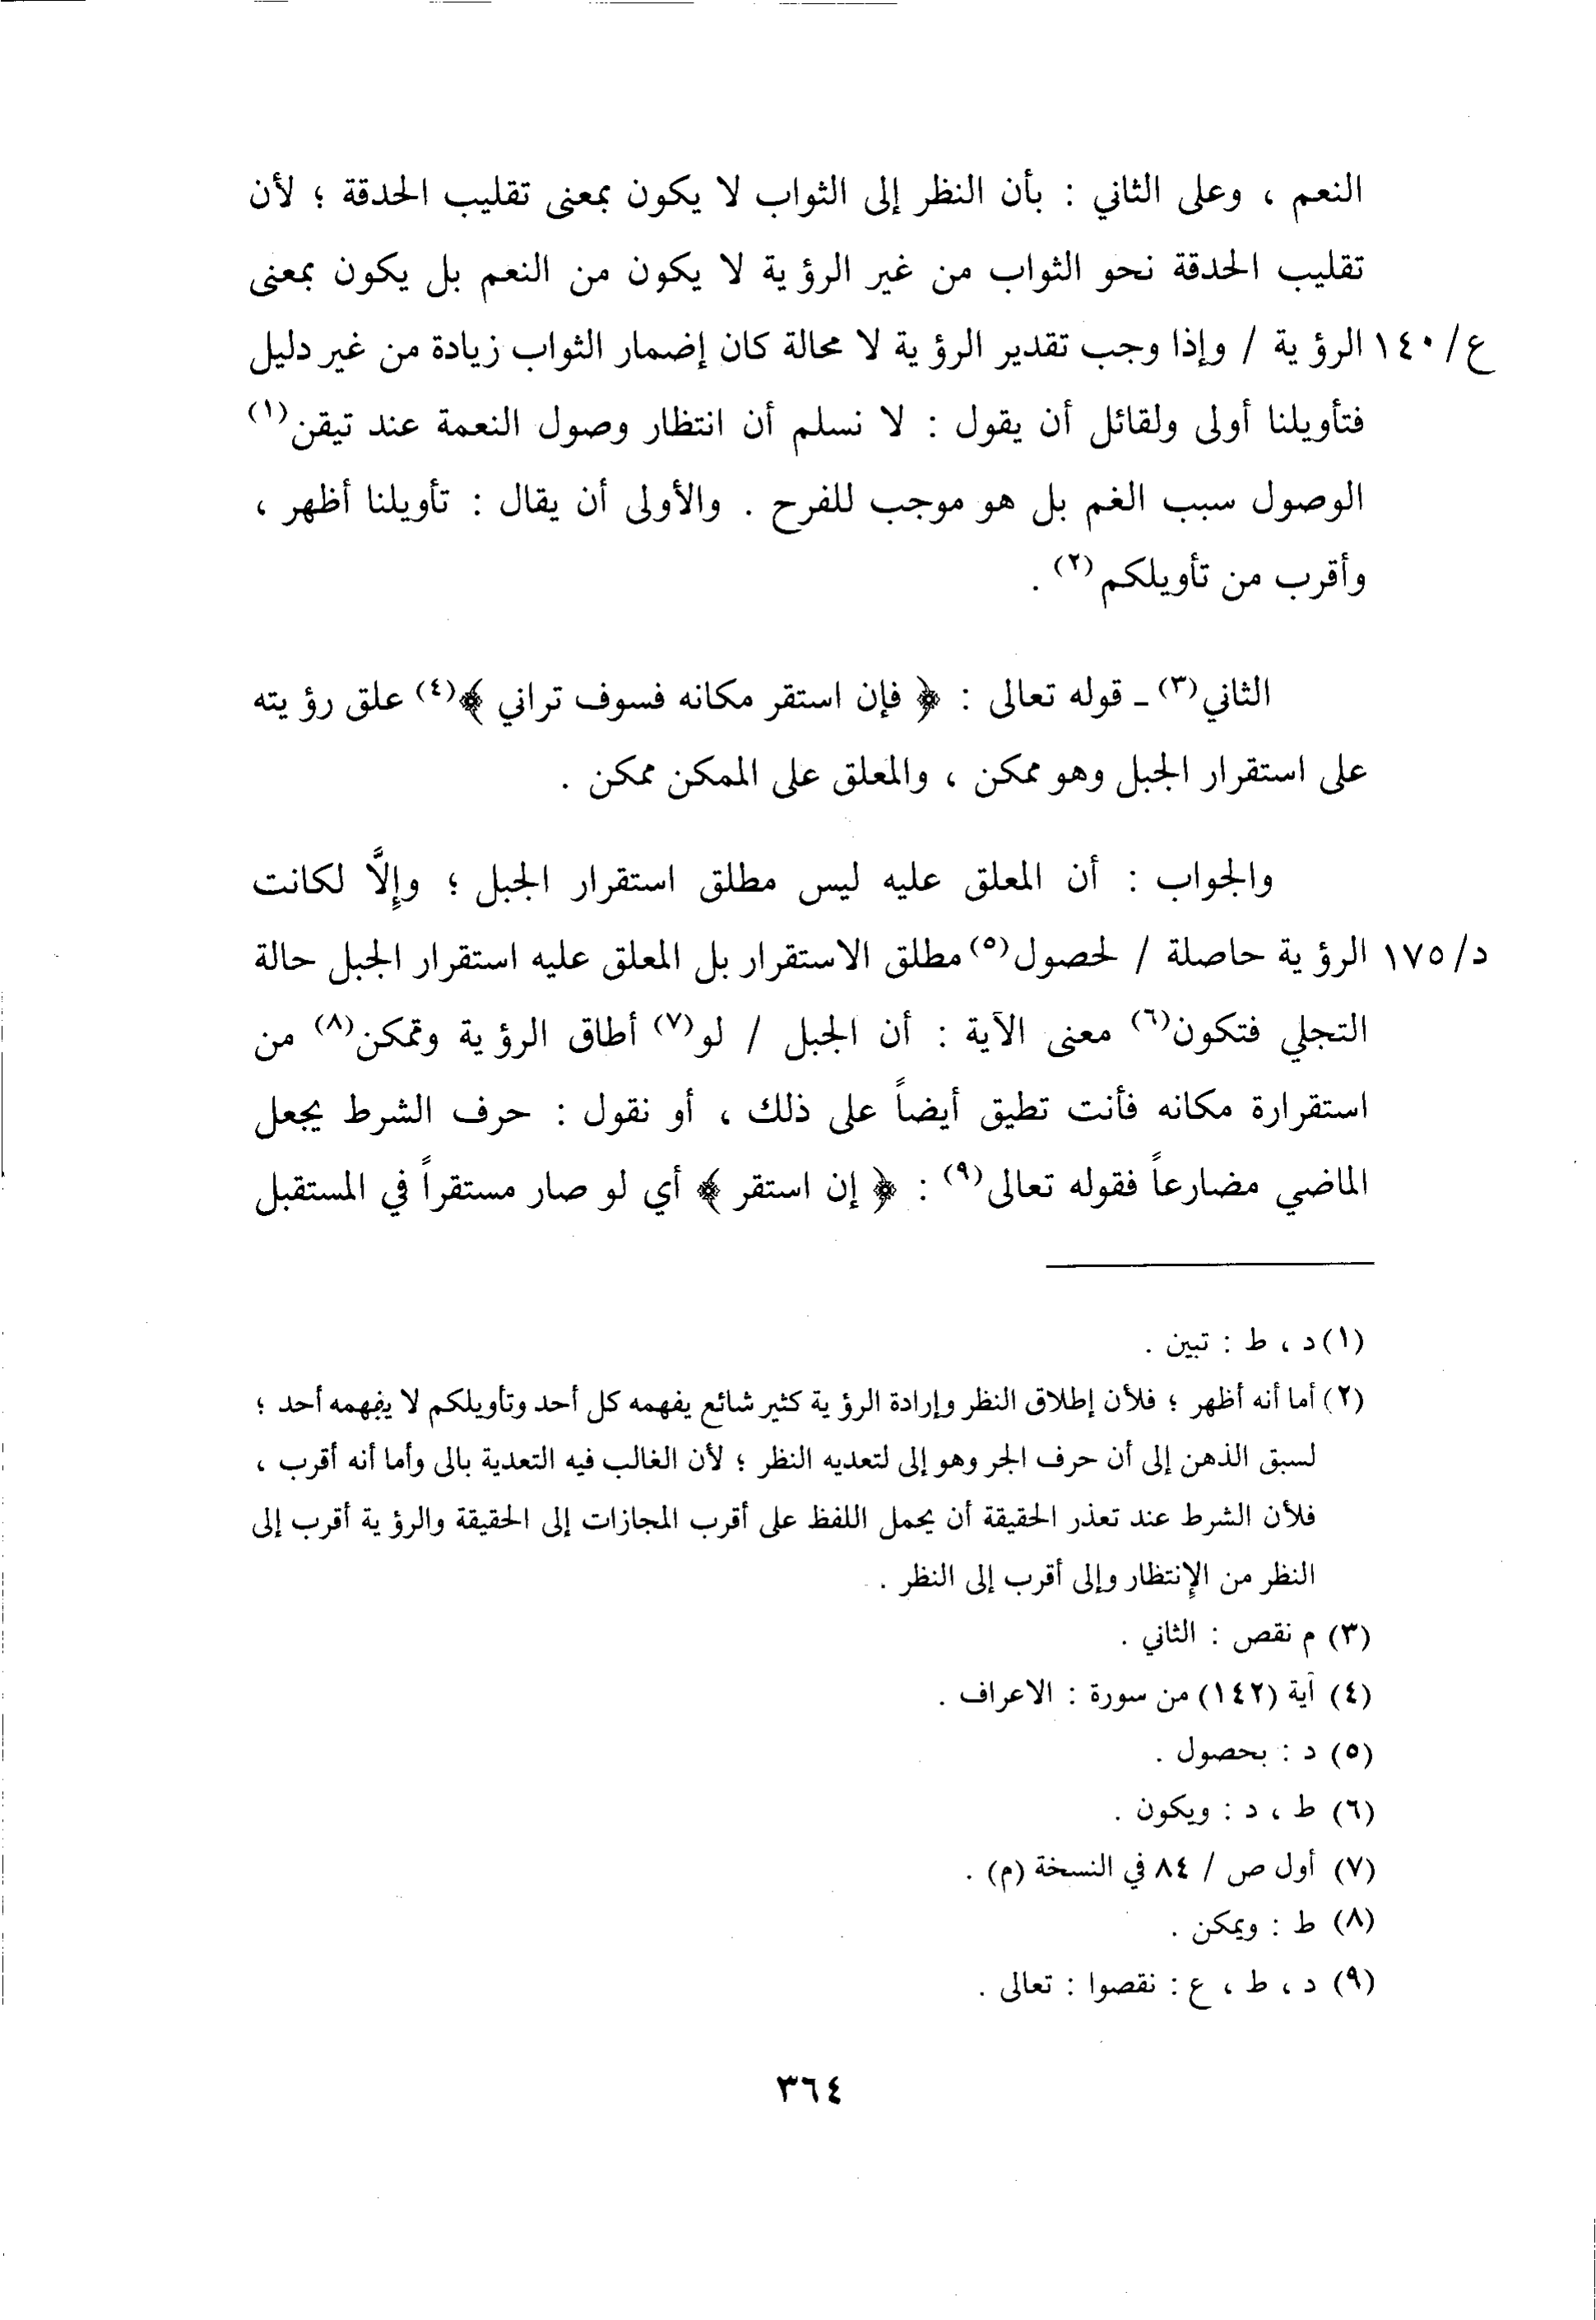 النعم ، وعلى الثاني : بأن النظر إلى الثواب لا يكون بمعنى تقليب الحدقة ؛ لأن
تقليب الحدقة نحو الثواب من غير الرؤية لا يكون من النعم بل يكون بمعنى
ع/١٤٠ الرؤية / وإذا وجب تقدير الرؤية لا محالة كان إضمار الثواب زيادة من غير دليل
فتأويلنا أولى ولقائل أن يقول : لا نسلم أن انتظار وصول النعمة عند تيقن(١)
الوصول سبب الغم بل هو موجب للفرح . والأولى أن يقال : تأويلنا أظهر ،
وأقرب من تأويلكم(٢) .
الثاني(٣) ـ قوله تعالى : ﴿ فإن استقر مكانه فسوف تراني ﴾(٤) علق رؤيته
على استقرار الجبل وهو ممكن ، والمعلق على الممكن ممكن .
والجواب : أن المعلق عليه ليس مطلق استقرار الجبل ؛ وإلَّا لكانت
د/١٧٥ الرؤية حاصلة / لحصول(٥) مطلق الاستقرار بل المعلق عليه استقرار الجبل حالة
التجلي فتكون(٦) معنى الآية : أن الجبل / لو(٧) أطاق الرؤية وتمكن(٨) من
استقرارة مكانه فأنت تطيق أيضاً على ذلك ، أو نقول : حرف الشرط يجعل
الماضي مضارعاً فقوله تعالى(٩) : ﴿ إن استقر ﴾ أي لو صار مستقراً في المستقبل
(١) د ، ط : تبين .
(٢) أما أنه أظهر ؛ فلأن إطلاق النظر وإرادة الرؤية كثير شائع يفهمه كل أحد وتأويلكم لا يفهمه أحد ؛
لسبق الذهن إلى أن حرف الجر وهو إلى لتعديه النظر ؛ لأن الغالب فيه التعدية بالى وأما أنه أقرب ،
فلأن الشرط عند تعذر الحقيقة أن يحمل اللفظ على أقرب المجازات إلى الحقيقة والرؤية أقرب إلى
النظر من الإنتظار وإلى أقرب إلى النظر .
(٣) م نقص : الثاني .
(٤) آية (١٤٢) من سورة : الاعراف .
(٥) د : بحصول .
(٦) ط ، د : ويكون .
(٧) أول ص / ٨٤ في النسخة (م) .
(٨) ط : ويمكن .
(٩) د ، ط ، ع : نقصوا : تعالى .
٣٦٤